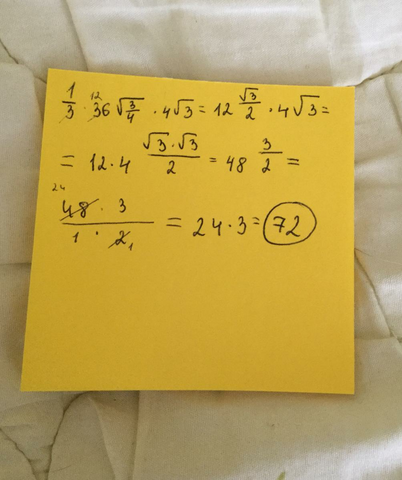 1/3 · 36 12 √(3/4) · 4√3 = 12 √3/2 · 4√3 =
= 12·4 √3·√3/2 = 48 3/2 =
24 48 · 3 / 1 · 2 1 = 24·3 = 72